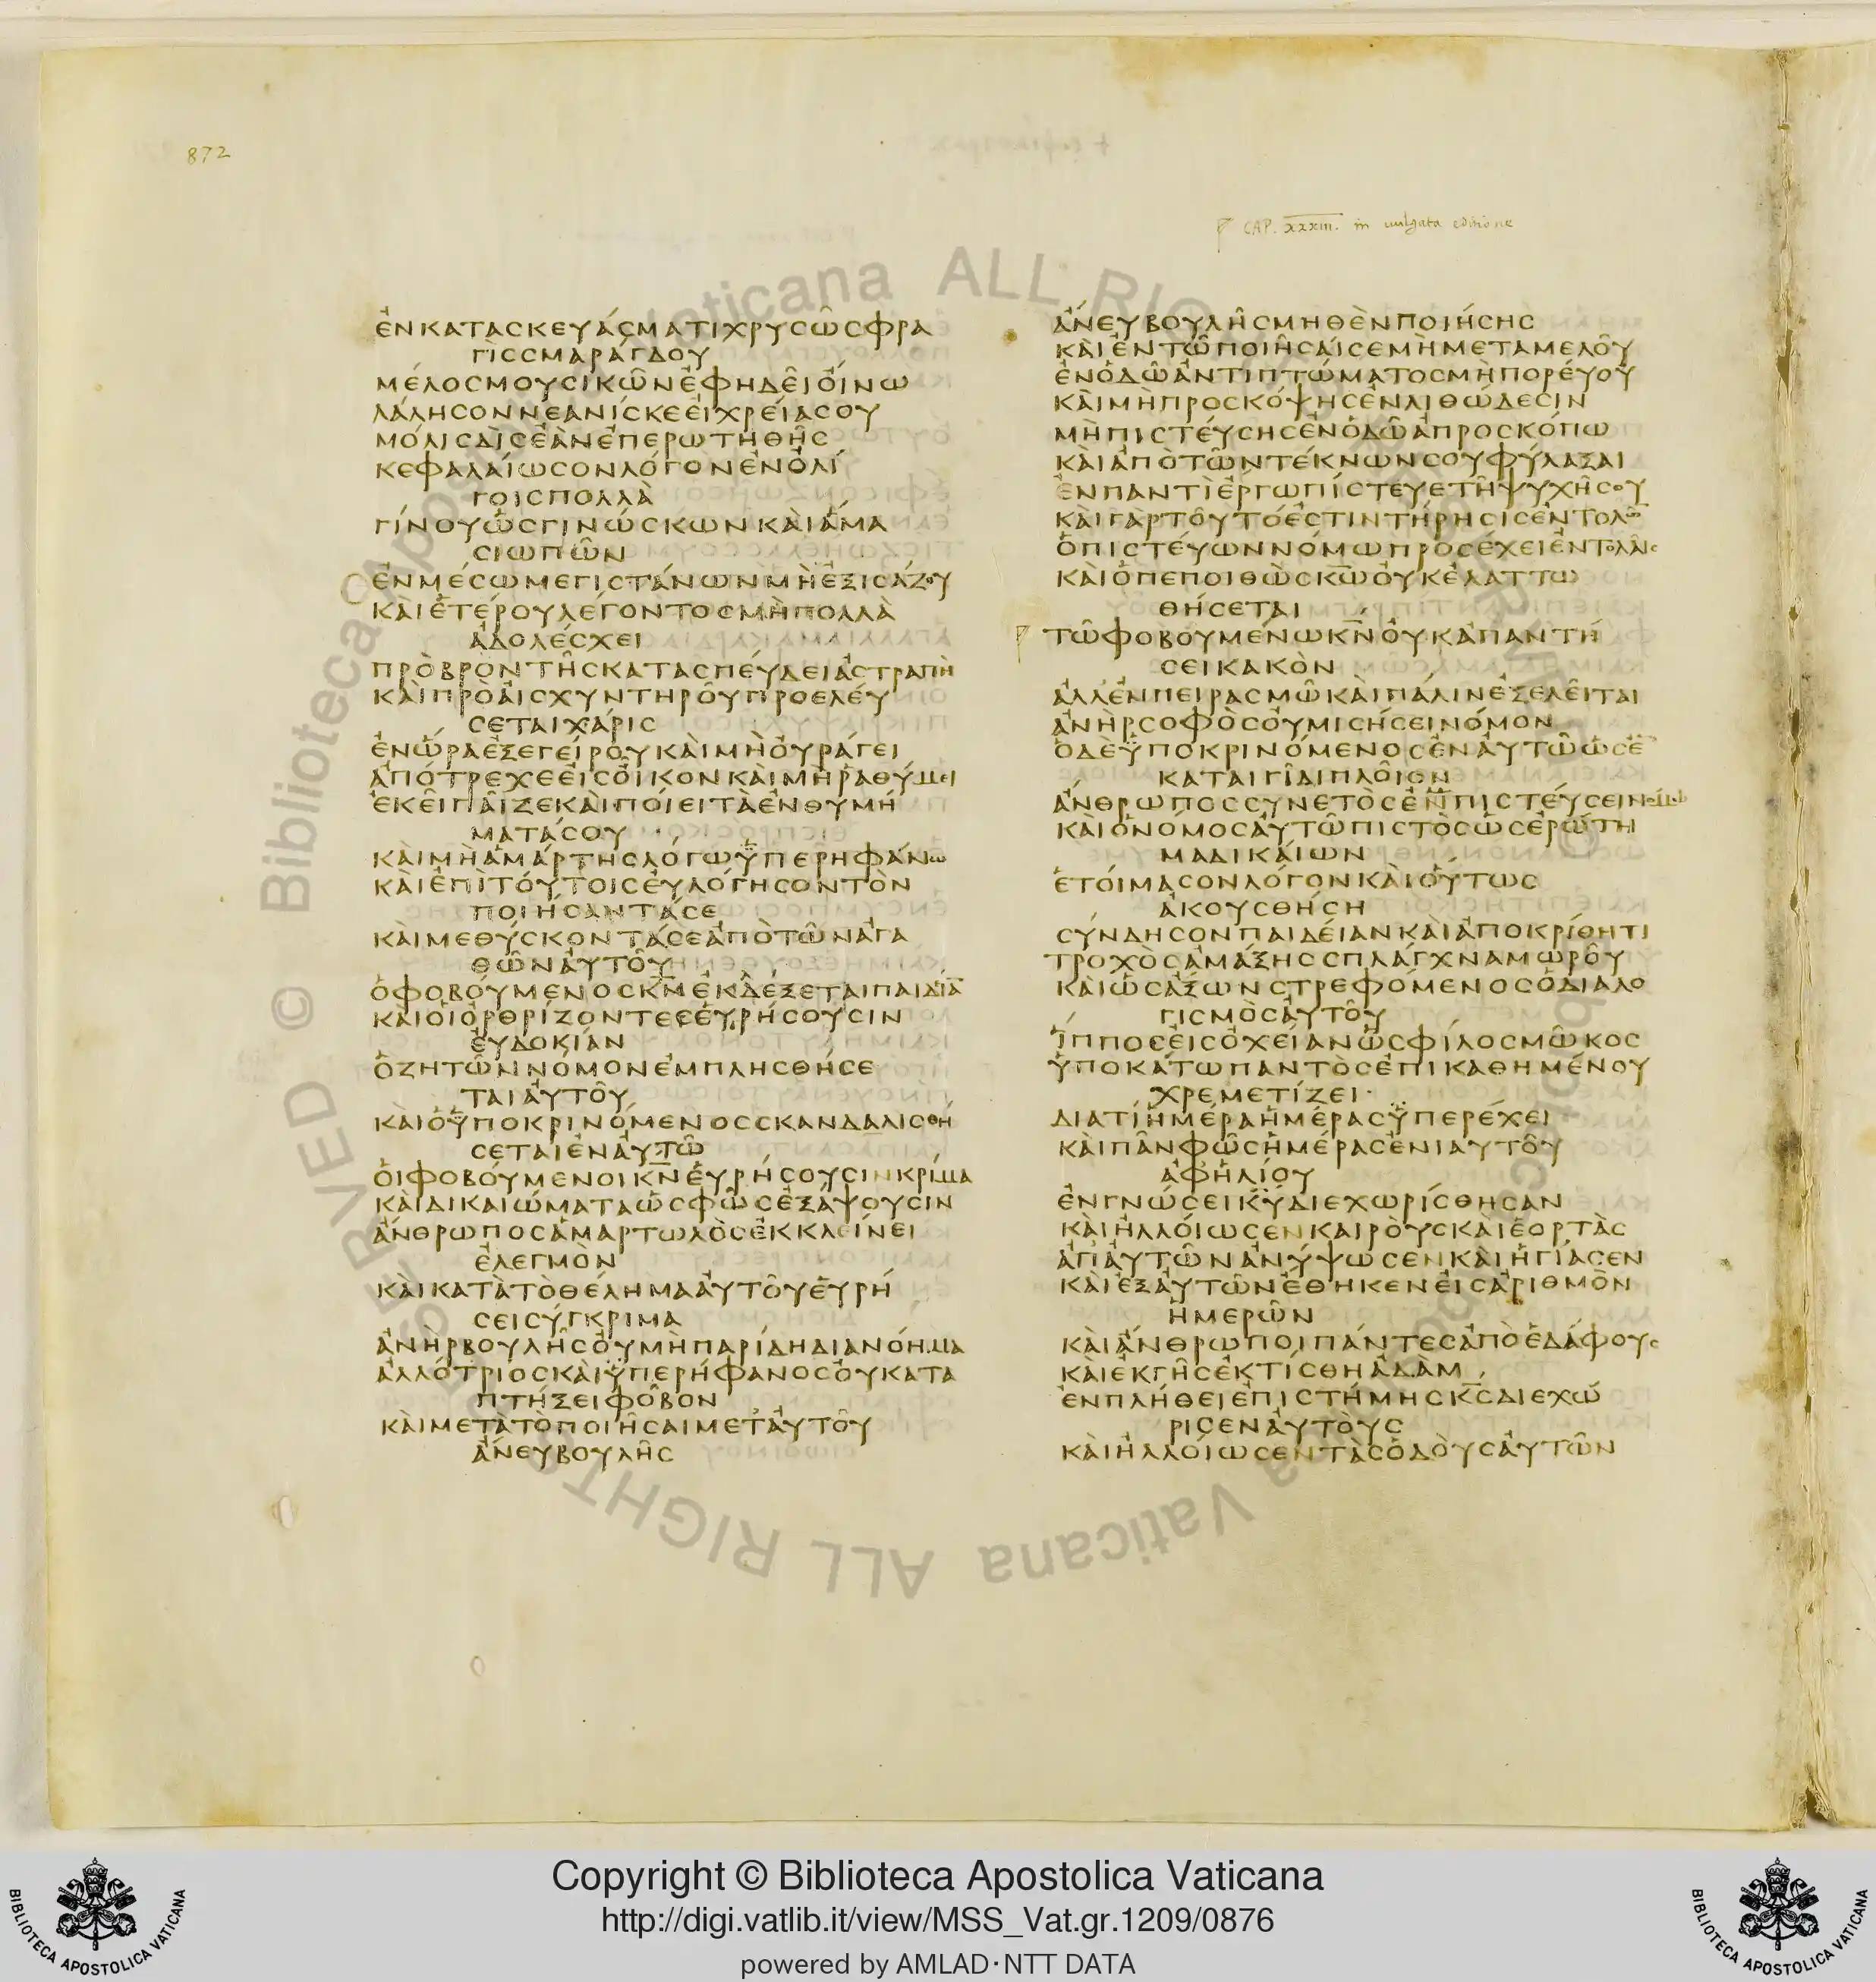 872
CAP. XXXIII. in vulgata editione
ἐν κατασκευάσματι χρυσῶ σφρα
γὶς σμαράγδου
μέλος μουσικῶν ἐφ ηδεῖ οἴνω
λάλησον νεανίσκε εἰ χρεία σου
μόλις δὶς ἐὰν ἐπερωτηθῆς
κεφαλαίωσον λόγον ἐν ὀλί
γοις πολλὰ
γίνου ὡς γινώσκων καὶ ἅμα
σιωπῶν
ἐν μέσω μεγιστάνων μὴ ἐξισάζου
καὶ ἑτέρου λέγοντος μὴ πολλὰ
ἀδολέσχει
πρὸ βροντῆς κατασπεύδει ἀστραπὴ
καὶ πρὸ αἰσχυντηροῦ προελεύ
σεται χάρις
ἐν ὥρα ἐξεγείρου καὶ μὴ οὐράγει
ἀπότρεχε εἰς οἶκον καὶ μὴ ῥαθύμει
ἐκεῖ παῖζε καὶ ποίει τὰ ἐνθυμή
ματά σου
καὶ μὴ ἁμάρτης λόγω ὑπερηφάνω
καὶ ἐπὶ τούτοις εὐλόγησον τὸν
ποιήσαντά σε
καὶ μεθύσκοντά σε ἀπὸ τῶν ἀγα
θῶν αὐτοῦ
ὁ φοβούμενος κν ἐκδέξεται παιδία
καὶ οἱ ὀρθρίζοντες εὑρήσουσιν
εὐδοκίαν
ὁ ζητῶν νόμον ἐμπλησθήσε
ται αὐτοῦ
καὶ ὁ ὑποκρινόμενος σκανδαλισθή
σεται ἐν αὐτῶ
οἱ φοβούμενοι κν εὑρήσουσιν κρίμα
καὶ δικαιώματα ὡς φῶς ἐξάψουσιν
ἄνθρωπος ἁμαρτωλὸς ἐκκλείνει
ἐλεγμὸν
καὶ κατὰ τὸ θέλημα αὐτοῦ εὑρή
σει σύγκριμα
ἀνὴρ βουλῆς οὐ μὴ παρίδη διανόημα
ἀλλότριος καὶ ὑπερήφανος οὐ κατα
πτήξει φόβον
καὶ μετὰ τὸ ποιῆσαι μετ αὐτοῦ
ἄνευ βουλῆς
ἄνευ βουλῆς μηθὲν ποιήσης
καὶ ἐν τῶ ποιῆσαί σε μὴ μεταμελοῦ
ἐν ὁδῶ ἀντιπτώματος μὴ πορεύου
καὶ μὴ προσκόψης ἐν λιθώδεσιν
μὴ πιστεύσης ἐν ὁδῶ ἀπροσκόπω
καὶ ἀπὸ τῶν τέκνων σου φύλαξαι
ἐν παντὶ ἔργω πίστευε τῆ ψυχῆ σου
καὶ γὰρ τοῦτό ἐστιν τήρησις ἐντολῶ
ὁ πιστεύων νόμω προσέχει ἐντολαῖς
καὶ ὁ πεποιθὼς κω οὐκ ἐλαττω
θήσεται
τῶ φοβουμένω κν οὐκ ἀπαντή
σει κακὸν
ἀλλ ἐν πειρασμῶ καὶ πάλιν ἐξελεῖται
ἀνὴρ σοφὸς οὐ μισήσει νόμον
ὁ δε ὑποκρινόμενος ἐν αὐτῶ ὡς ἐ
καταιγῖδι πλοῖον
ἄνθρωπος συνετὸς ἐνπιστεύσει νόμω
καὶ ὁ νόμος αὐτῶ πιστὸς ὡς ἐρώτη
μα δικαίων
ἑτοίμασον λόγον καὶ οὕτως
ἀκουσθήση
σύνδησον παιδείαν καὶ ἀποκρίθητι
τροχὸς ἁμάξης σπλάγχνα μωροῦ
καὶ ὡς ἄξων στρεφόμενος ὁ διαλο
γισμὸς αὐτοῦ
ἵππος εἰς ὀχείαν ὡς φίλος μῶκος
ὑποκάτω παντὸς ἐπικαθημένου
χρεμετίζει
διατί ἡμέρα ἡμέρας ὑπερέχει
καὶ πᾶν φῶς ἡμέρας ἐνιαυτοῦ
ἀφ ἡλίου
ἐν γνώσει κυ διεχωρίσθησαν
καὶ ἠλλοίωσεν καιροὺς καὶ ἑορτὰς
ἀπ αὐτῶν ἀνύψωσεν καὶ ἡγίασεν
καὶ ἐξ αὐτῶν ἔθηκεν εἰς ἀριθμὸν
ἡμερῶν
καὶ ἄνθρωποι πάντες ἀπὸ ἐδάφους
καὶ ἐκ γῆς ἐκτίσθη ἀδὰμ
ἐν πλήθει ἐπιστήμης κς διεχώ
ρισεν αὐτοὺς
καὶ ἠλλοίωσεν τὰς ὁδοὺς αὐτῶν
Copyright © Biblioteca Apostolica Vaticana
http://digi.vatlib.it/view/MSS_Vat.gr.1209/0876
powered by AMLAD·NTT DATA
BIBLIOTECA APOSTOLICA VATICANA
BIBLIOTECA APOSTOLICA VATICANA